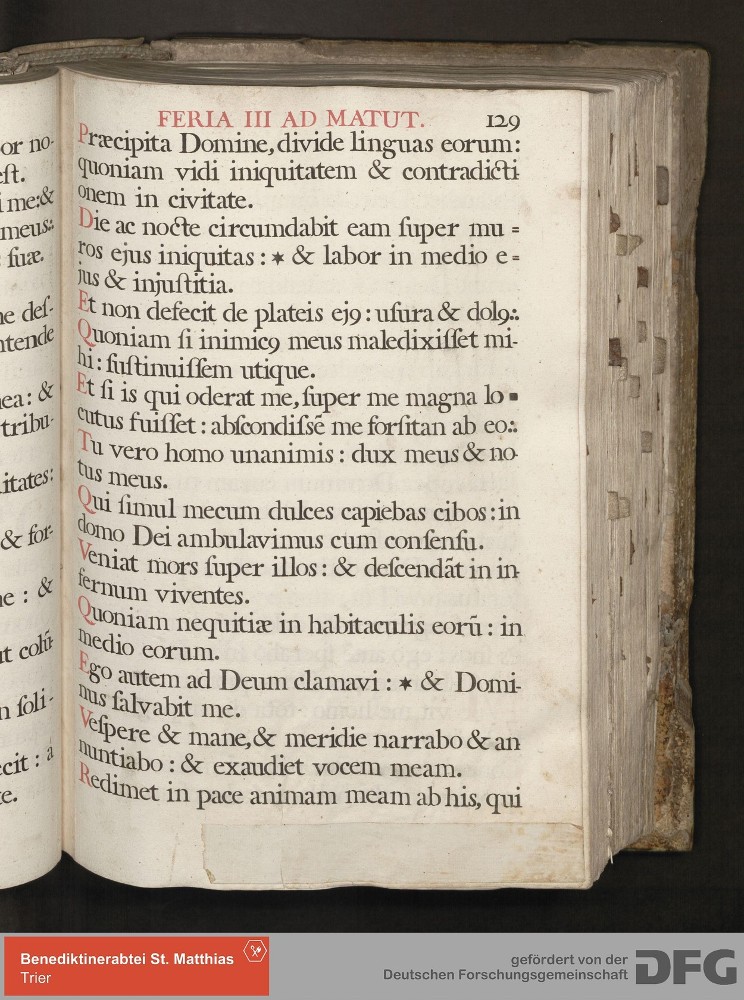 or no-
est.
i me:&
meus:.
: suæ.
ne des-
ntende
ea: &
tribu-
itates:
& for-
ne : &
ut colū-
n soli-
ecit : a
te.
FERIA III AD MATUT. 129
Præcipita Domine, divide linguas eorum:
quoniam vidi iniquitatem & contradicti
onem in civitate.
Die ac nocte circumdabit eam ſuper mu =
ros ejus iniquitas : ✶ & labor in medio e =
jus & injuſtitia.
Et non defecit de plateis ejꝰ : uſura & dolꝰ:.
Quoniam ſi inimicꝰ meus maledixiſſet mi-
hi : ſuſtinuiſſem utique.
Et ſi is qui oderat me, ſuper me magna lo▪
cutus fuiſſet : abſcondiſsē me forſitan ab eo:.
Tu vero homo unanimis : dux meus & no-
tus meus.
Qui ſimul mecum dulces capiebas cibos : in
domo Dei ambulavimus cum conſenſu.
Veniat mors ſuper illos : & deſcendāt in in-
fernum viventes.
Quoniam nequitiæ in habitaculis eorū : in
medio eorum.
Ego autem ad Deum clamavi : ✶ & Domi-
nus ſalvabit me.
Veſpere & mane, & meridie narrabo & an
nuntiabo : & exaudiet vocem meam.
Redimet in pace animam meam ab his, qui
Benediktinerabtei St. Matthias
Trier
gefördert von der
Deutschen Forschungsgemeinschaft
DFG